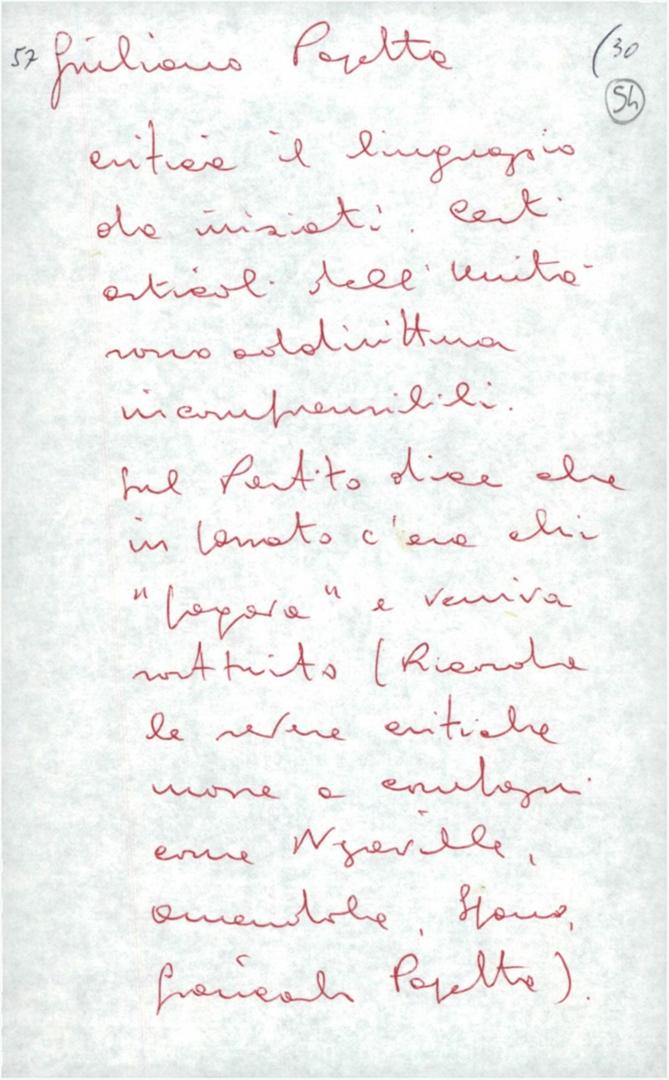 57 Giuliano Pajetta (30
54
critica il linguaggio
da iniziati. Certi
articoli dell'Unità
sono addirittura
incomprensibili.
Sul Partito dice che
in passato c'era chi
"pagava" e veniva
sostituito (Ricorda
le severe critiche
mosse a compagni
come Negarville,
Amendola, Spano,
Giancarlo Pajetta).